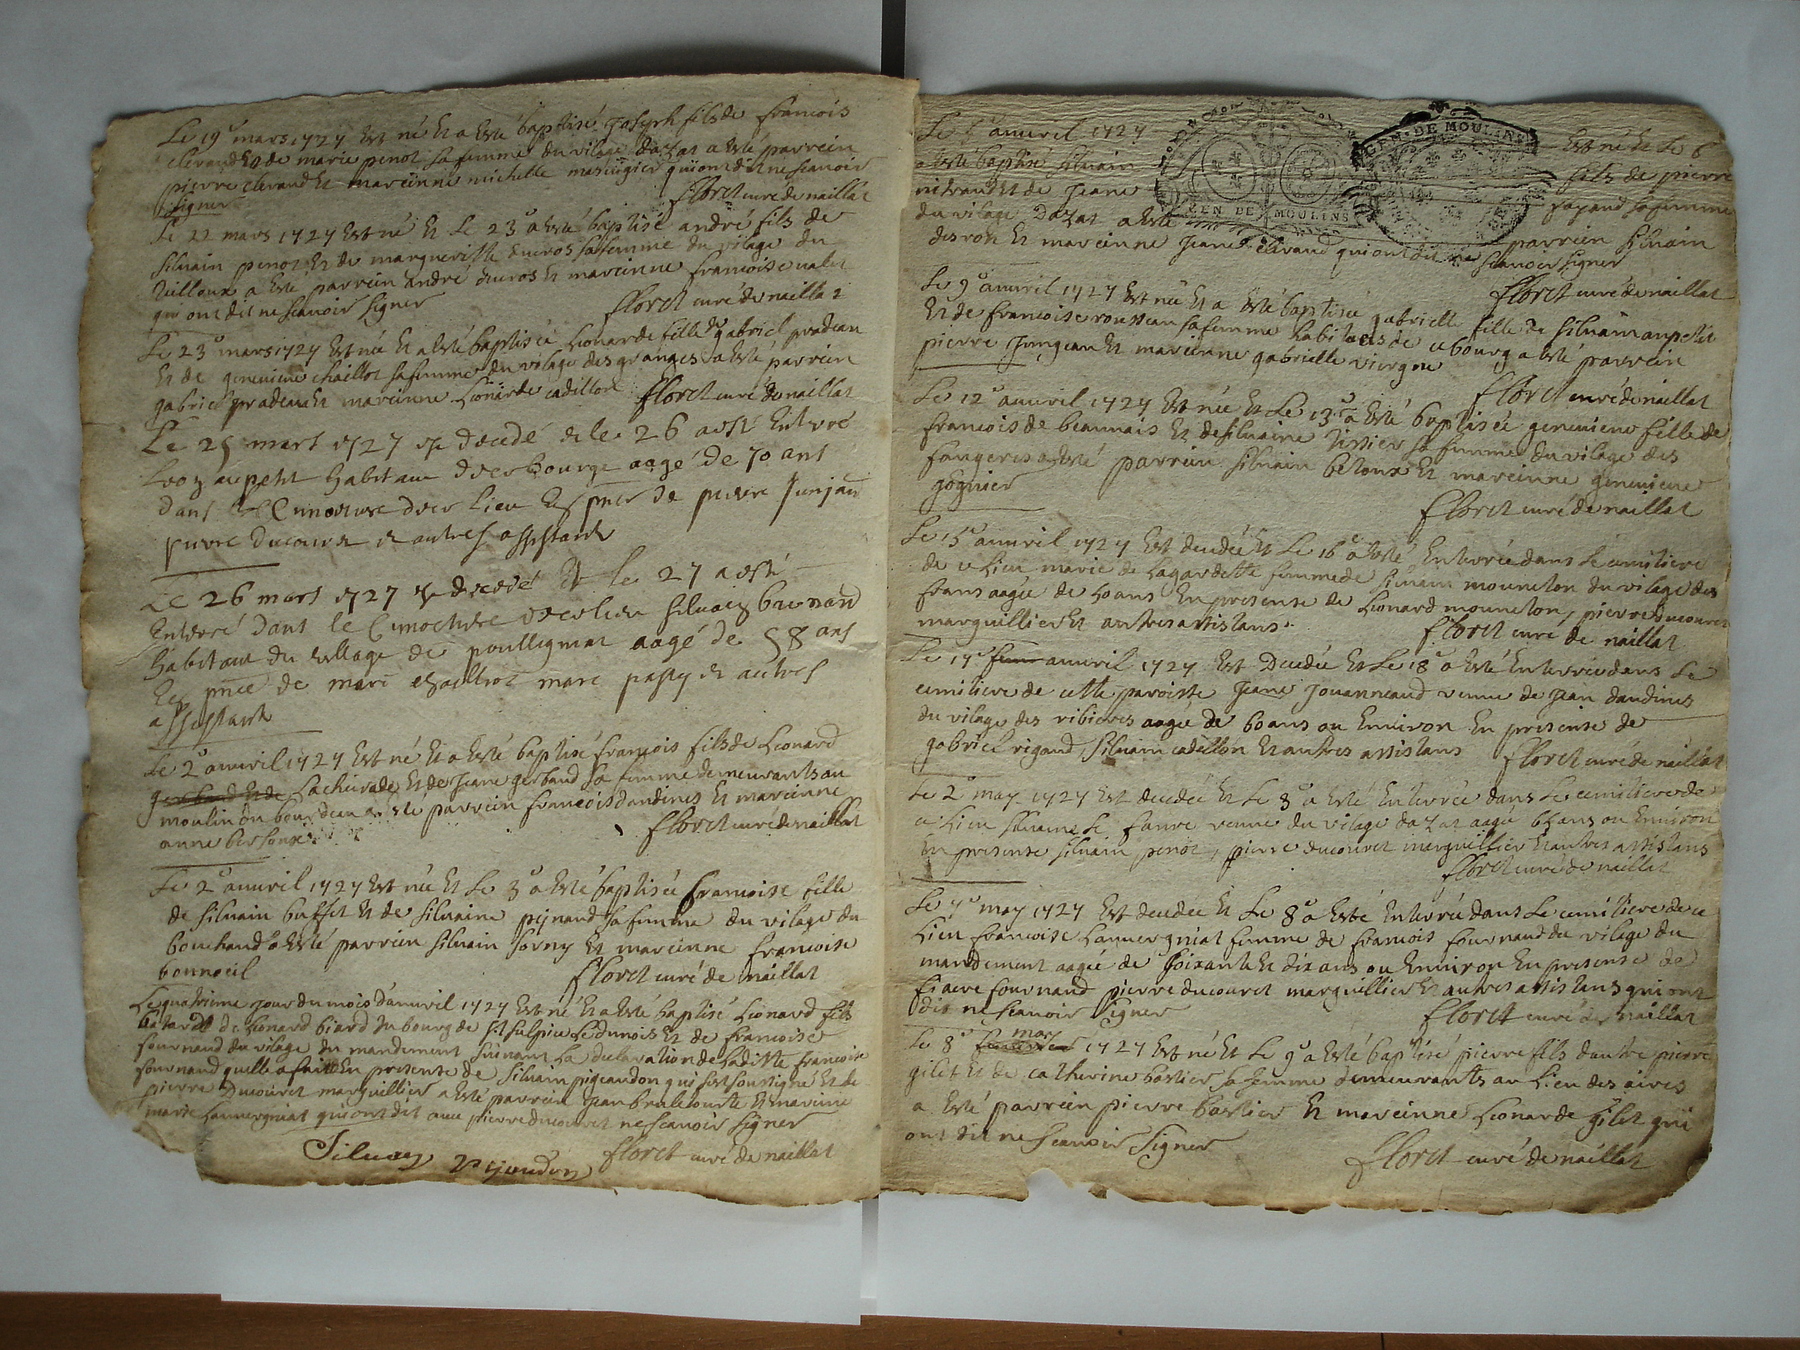 Le 19e mars 1727 Est né Et a Esté baptisé Joseph fils de francois
cleraud Et de marie penot sa femme du vilage dazat a esté parrein
pierre cleraud Et mareinne michelle qui ont dit ne scauoir
signer floret curé de naillat
Le 22 mars 1727 Est né Et Le 23e a esté baptisé andré fils de
siluain penot Et de margueritte ducros sa femme du vilage du
a Esté parrein andré ducros Et mareinne francoise
qui ont dit ne scauoir signer floret curé de naillat
Le 23e mars 1727 Est née Et a Esté baptisée Lionarde fille de gabriel pradeau
Et de geneuieue chaillot sa femme du vilage des granges a Esté parrein
gabriel pradeau Et mareinne Lionarde cadillon floret curé de naillat
Le 25 mars 1727 est decedé et le 26 a esté Enterré
aupetit habitant de ce bourg aagé de 70 ans
dans le Cimetiere de ce lieu En pnce de pierre Junjaud
pierre ducouret et autres assistants
Le 26 mars 1727 est decedé Et le 27 a esté
Enterré dans le Cimetiere de ce lieu siluain
habitant du village de poulligniat aagé de 58 ans
En pnce de marc chaillot marc et autres
assistants
Le 2e auuril 1727 Est né Et a Esté baptisé francois fils de Lionard
Lacheurade Et de Jeane gerbaud sa femme demeurants au
moulin du a este parrein francois dandines Et mareinne
anne floret curé de naillat
Le 2e auuril 1727 Est née Et Le 3e a Esté baptisée francoise fille
de siluain buffet Et de siluaine pijnaud sa femme du vilage du
bouchaud a Esté parrein siluain forny Et mareinne francoise
bonnoeil floret curé de naillat
Le quatrieme Jour du mois dauuril 1727 Est né Et a Esté baptisé Lionard fils
batard de Lionard biard du bourg de st sulpice Le dunois Et de francoise
fournaud du vilage du mandement suiuant La declaration de Laditte francoise
fournaud quelle a fait En presente de siluain pigeaudon qui sest soussigné Et de
pierre Ducouret marguillier a Esté parrein Jean Et mareinne
marie Lauuergniat qui ont dit auec pierre ducouret ne scauoir signer
Siluain pijaudon floret curé de naillat
Le 5e auuril 1727 Est né Et Le 6
a Esté baptisé siluain fils de pierre
Et de Jeane fayaud sa femme
du vilage Dazat a Esté parrein siluain
desron Et mareinne Jeane cleraud qui ont dit ne scauoir signer
GEN DE MOULINS
GEN DE MOULINS
floret curé de naillat
Le 9e auuril 1727 Est née Et a Esté baptisée gabrielle fille de siluain aupetit
Et de francoise rousseau sa femme habitans de ce bourg a Esté parrein
pierre Junjeau Et mareinne gabrielle viergne
floret curé de naillat
Le 12e auuril 1727 Est née Et Le 13e a Esté baptisée geneuieue fille de
francois de beauuais Et de siluaine tixier sa femme du vilage des
fougeres a Esté parrein siluain betoux Et mareinne geneuieue
gognier
floret curé de naillat
Le 15e auuril 1727 Est decedée Et Le 16e a Esté Enterrée dans Le cemitiere
de ce Lieu marie de Lagardette femme de siluain mourelon du vilage des
frans aagée de 40 ans En presente de Lionard mourelon, pierre ducouret
marguillier Et autres assistans. floret curé de naillat
Le 17e auuril 1727 Est Decedée Et Le 18e a Esté Enterrée dans Le
cemitiere de cette paroisse Jeane Jouanneaud veuue de Jean dandines
du vilage des ribieres aagée de 60 ans ou Enuiron En presente de
gabriel rigaud, siluain cadillon Et autres assistans floret curé de naillat
Le 2e may 1727 Est decedée Et Le 3e a Esté Enterrée dans Le cemitiere de
ce Lieu siluaine Le faure veuue du vilage dazat aagée 65 ans ou Enuiron
En presente siluain penot, pierre ducouret marguillier Et autres assistans
floret curé de naillat
Le 7e may 1727 Est decedée Et Le 8e a Esté Enterrée dans Le cemitiere de ce
Lieu francoise Lauuergniat femme de francois fournaud du vilage du
mandement aagée de soixante Et dix ans ou Enuiron En presente de
fiacre fournaud pierre ducouret marguillier Et autres assistans qui ont
dit ne scauoir signer floret curé de naillat
Le 8e may 1727 Est né Et Le 9e a Esté baptisé pierre fils dautre pierre
gilet Et de catherine bastier sa femme demeurants au Lieu des aires
a Esté parrein pierre bastier Et mareinne Lionarde gilet qui
ont dit ne scauoir signer floret curé de naillat